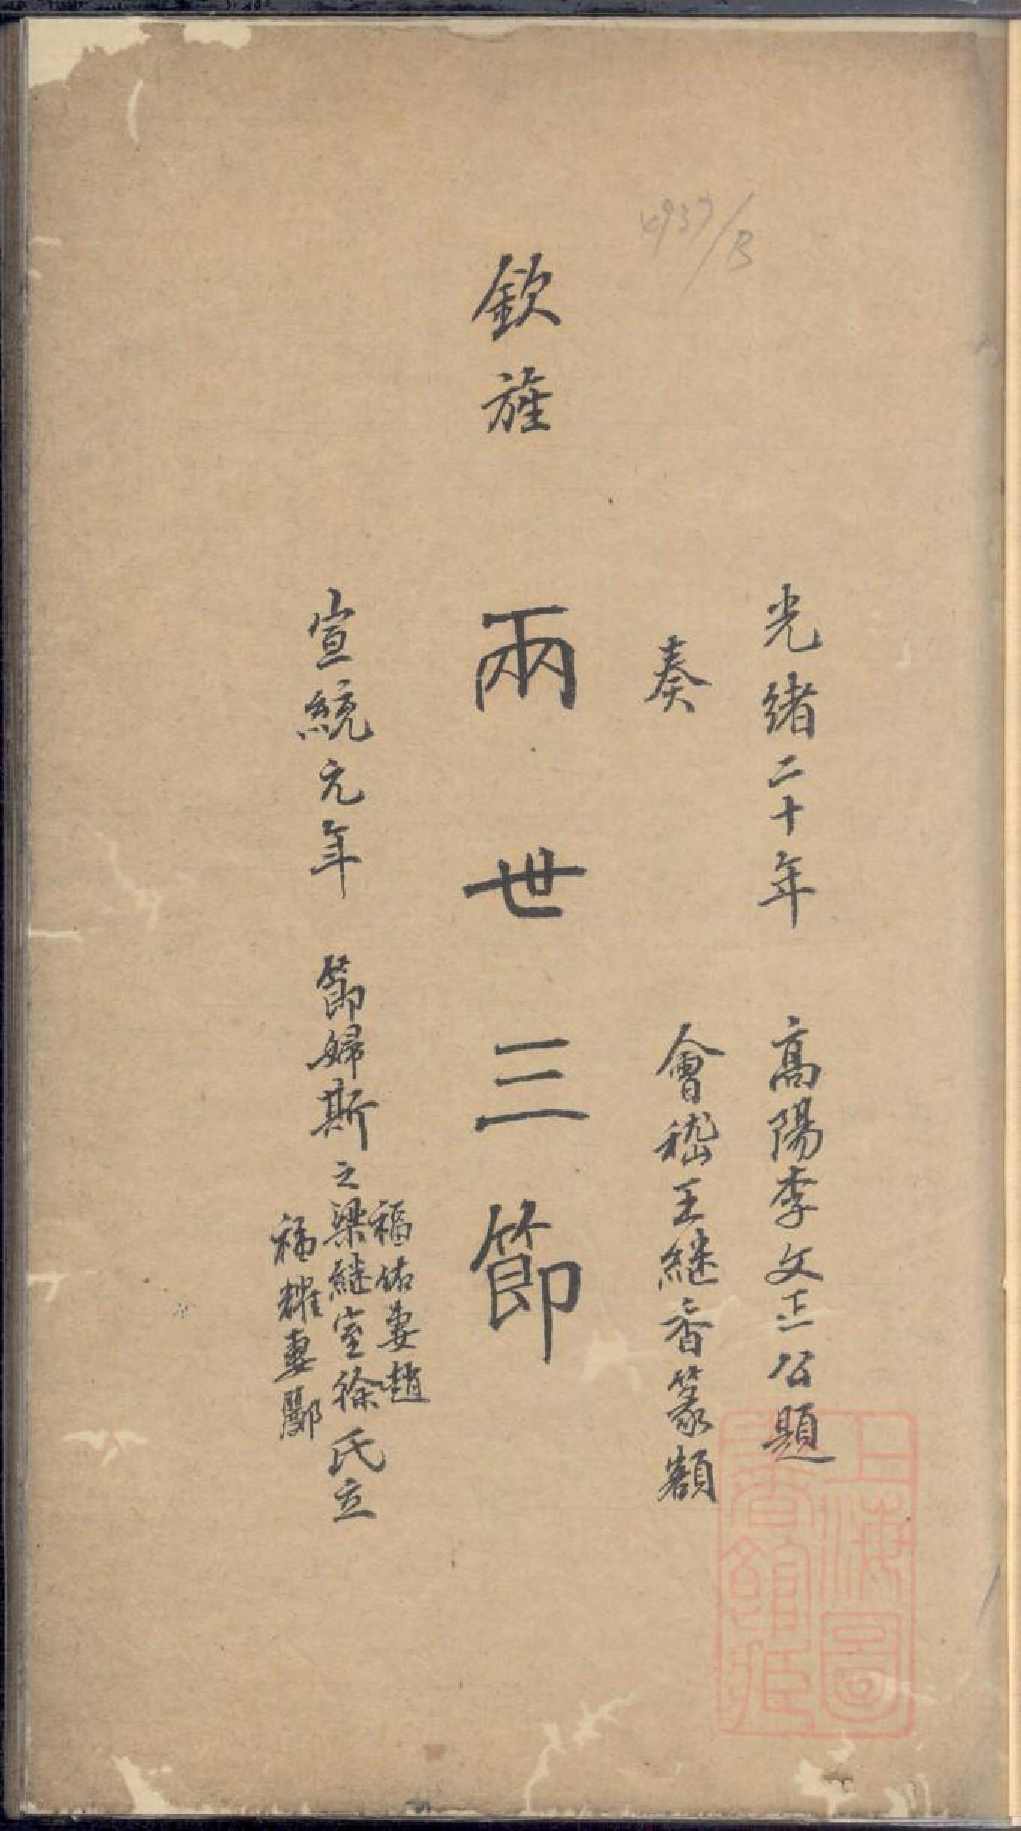 光緒二十年 高陽李文正公題
奏 會稽王継香篆額
欽旌 兩世三節
福佑妻趙
宣統元年 節婦斯之梁継室徐氏立
福耀妻酈
上海圖
書館藏